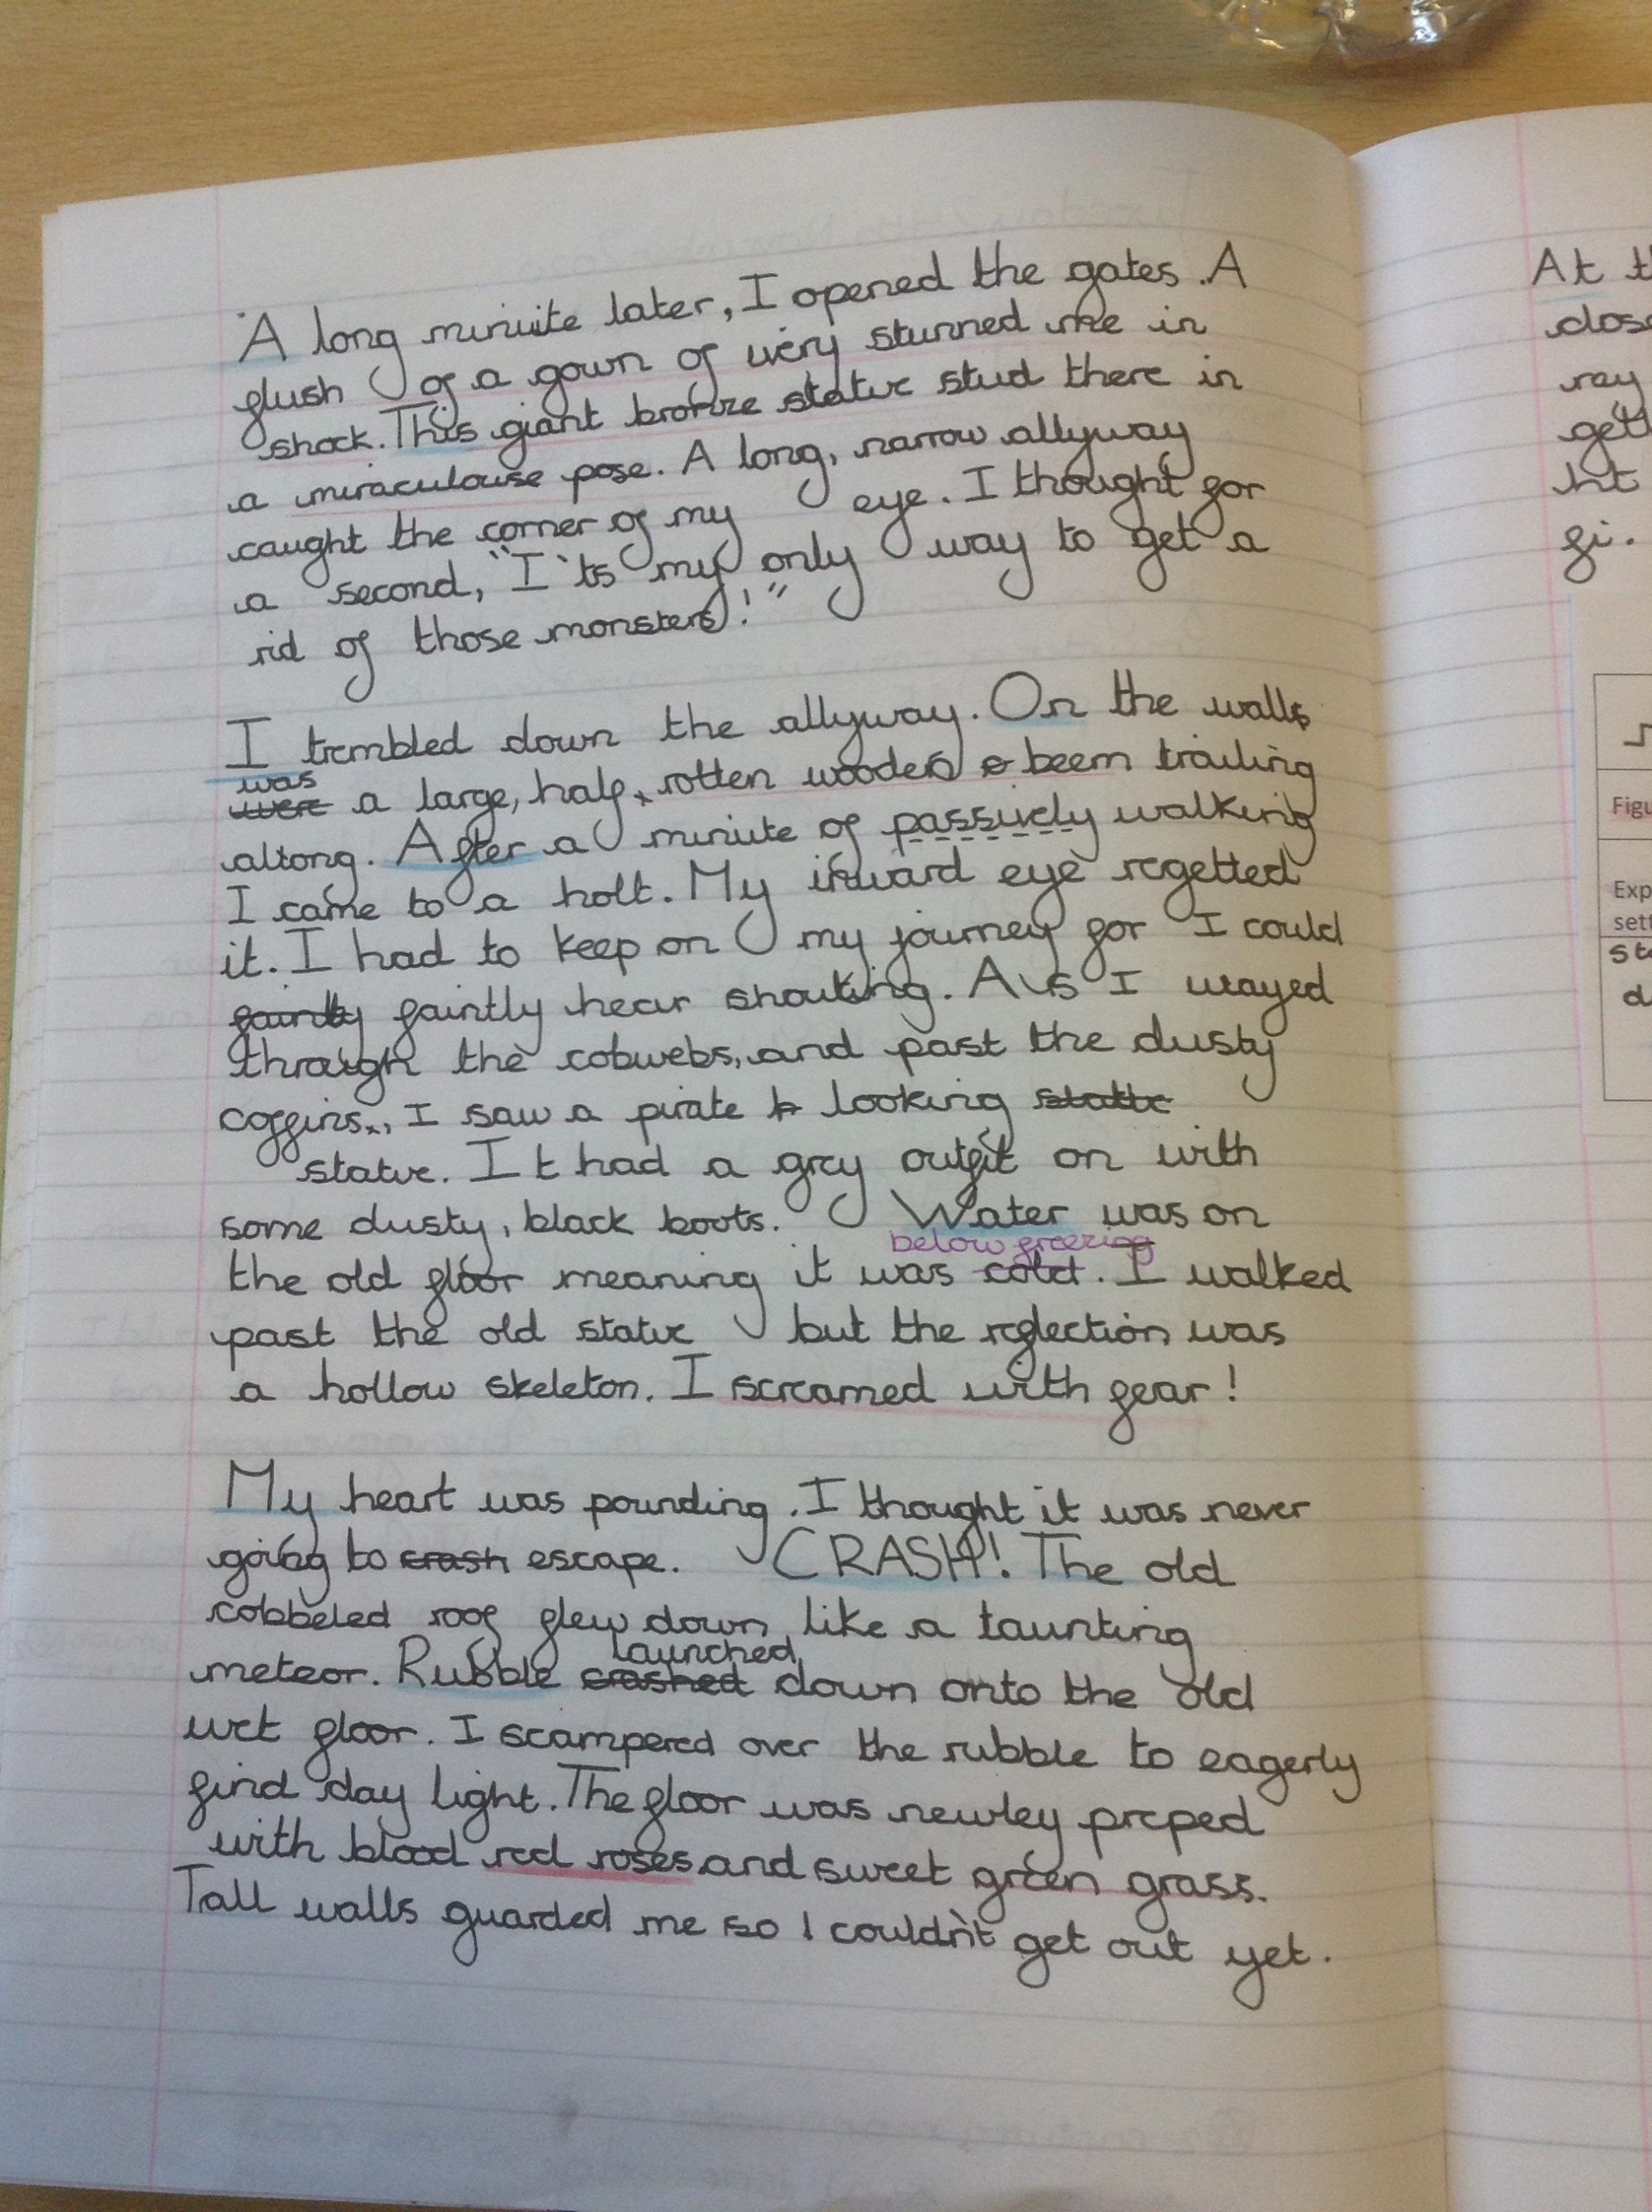 A long miniuite later, I opened the gates. A
flush of a gown of ivery stunned me in
shock. This giant bronze statue stud there in
a miraculouse pose. A long, narrow allyway
caught the corner of my eye. I thought for
a second, "I'ts my only way to get a
rid of those monsters!"
I trembled down the allyway. On the walls
was
were a large, half, rotten wooden beem trailing
altong. After a miniute of passively walking
I came to a holt. My inward eye regetted
it. I had to keep on my journey for I could
faintly faintly hear shouting. As I wayed
through the cobwebs, and past the dusty
coffins, I saw a pirate looking statte
statue. It had a grey outfit on with
some dusty, black boots. Water was on
below freezing
the old floor meaning it was cold. I walked
past the old statue but the reflection was
a hollow skeleton. I screamed with fear!
My heart was pounding. I thought it was never
going to crash escape. CRASH! The old
cobbeled roof flew down like a taunting
launched
meteor. Rubble crashed down onto the old
wet floor. I scampered over the rubble to eagerly
find day light. The floor was newley preped
with blood red roses and sweet green grass.
Tall walls guarded me so I couldn't get out yet.
At
ray
fi.
Figu
Exp
sett